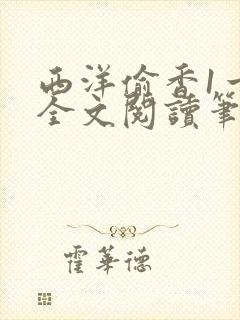 西洋偷香1一
全文閱讀筆
霍華德